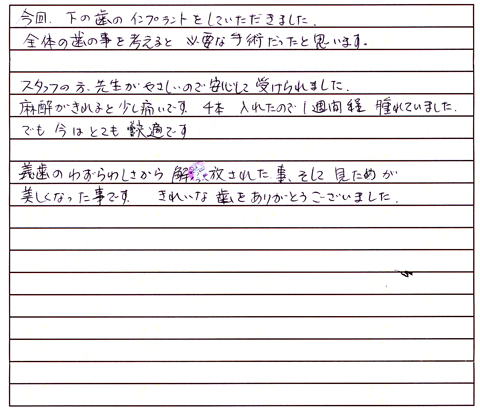 今回、下の歯のインプラントをしていただきました。
全体の歯の事を考えると 必要な手術だったと思います。
スタッフの方、先生がやさしいので安心して受けられました。
麻酔がきれると少し痛いです 4本 入れたので1週間経 腫れていました。
でも今はとても快適です
義歯のわずらわしさから解放された事、そして見ためが
美しくなった事です。 きれいな歯をありがとうございました。